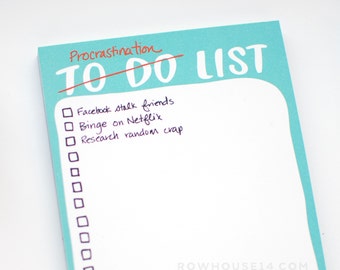 Procrastination
TO DO LIST
Facebook stalk friends
Binge on Netflix
Research random crap
ROWHOUSE14.COM